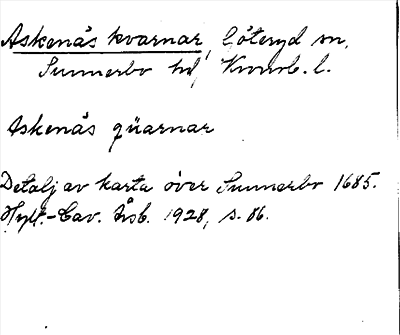 Askenås kvarnar, Göteryd sn,
Sunnerbo hd, Kronob. l.
Askenås qüarnar
Detalj av karta över Sunnerbo 1685.
Hylt.-Cav. Årsb. 1928, s. 86.